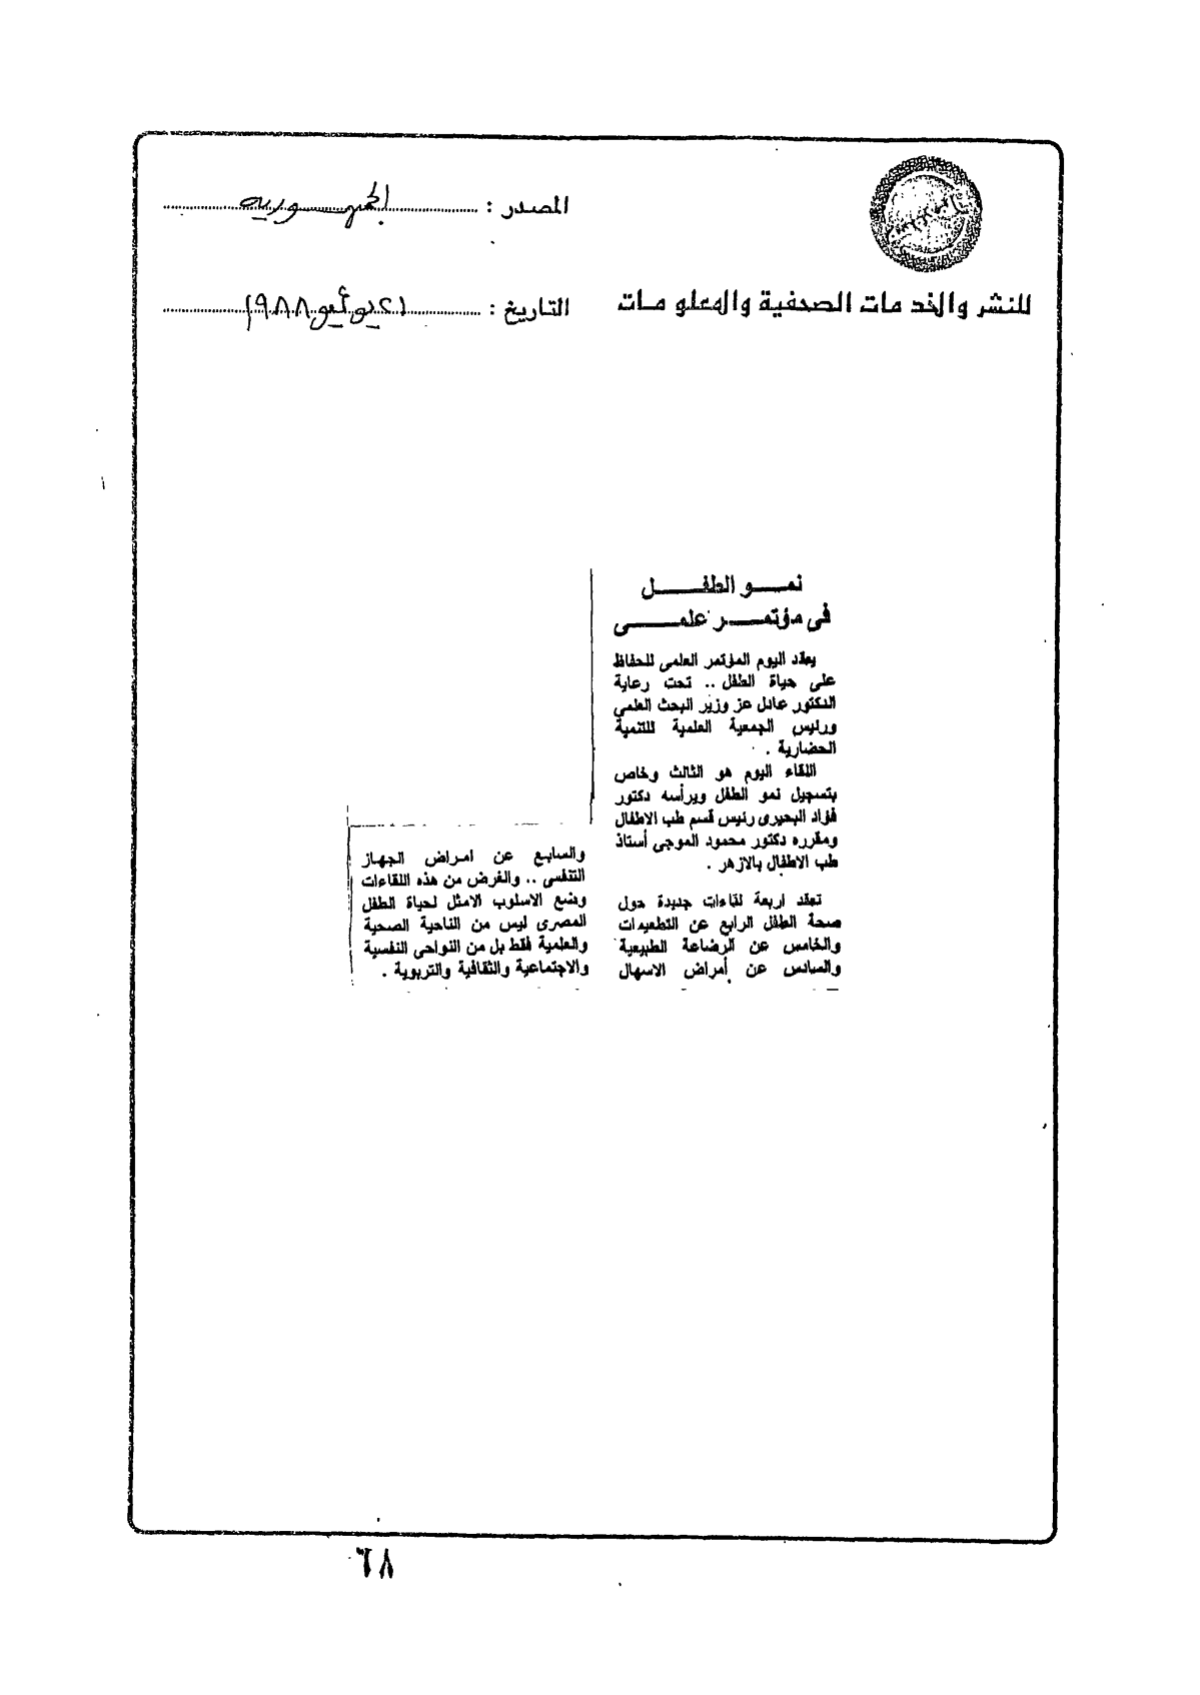 المصدر : الجمهوريه
للنشر والخدمات الصحفية والمعلومات
التاريخ : ٢١ يوليو ١٩٨٨
نمـــو الطفـــــل
فى مؤتمـــر علمـــى
يعقد اليوم المؤتمر العلمى للحفاظ
على حياة الطفل .. تحت رعاية
الدكتور عادل عز وزير البحث العلمى
ورئيس الجمعية العلمية للتنمية
الحضارية .
اللقاء اليوم هو الثالث وخاص
بتسجيل نمو الطفل ويرأسه دكتور
فؤاد البحيرى رئيس قسم طب الاطفال
ومقرره دكتور محمود الموجى أستاذ
طب الاطفال بالازهر .
تعقد اربعة لقاءات جديدة حول
صحة الطفل الرابع عن التطعيمات
والخامس عن الرضاعة الطبيعية
والسادس عن أمراض الاسهال
والسابع عن امراض الجهاز
التنفسى .. والغرض من هذه اللقاءات
وضع الاسلوب الامثل لحياة الطفل
المصرى ليس من الناحية الصحية
والعلمية فقط بل من النواحى النفسية
والاجتماعية والثقافية والتربوية .
٨٦